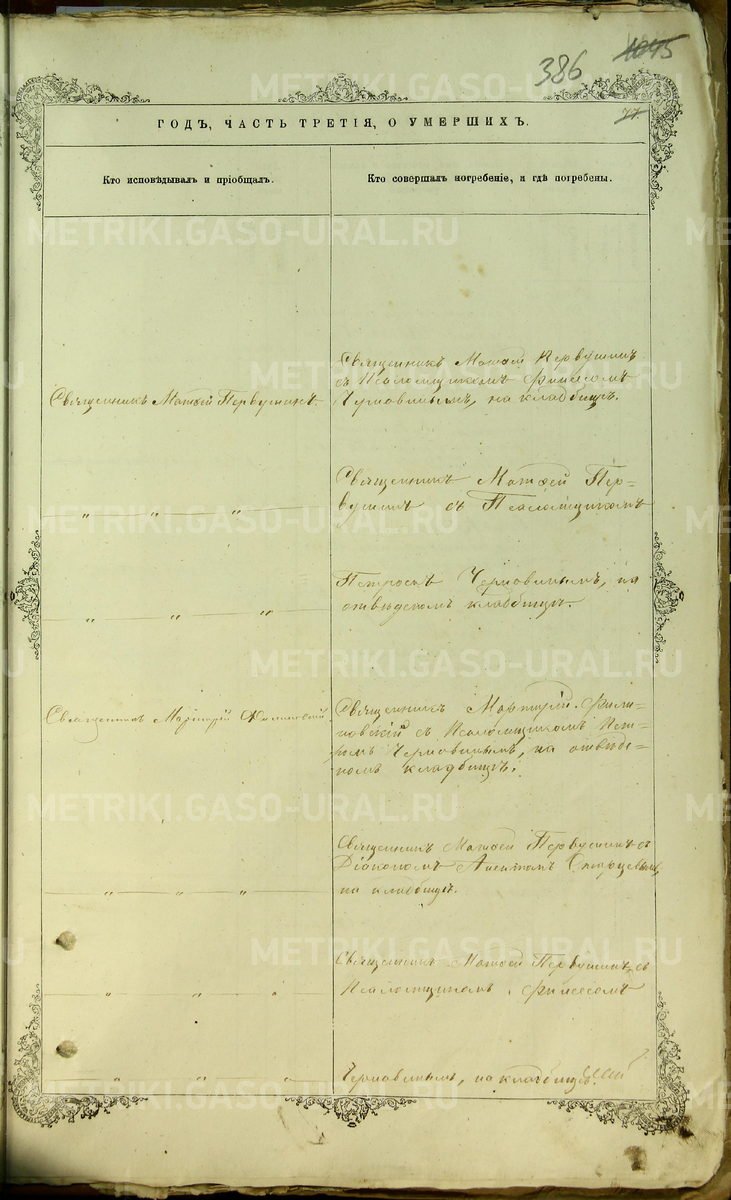 386
1045
77
ГОДЪ, ЧАСТЬ ТРЕТІЯ, О УМЕРШИХЪ.
Кто исповѣдывалъ и пріобщалъ.
Кто совершалъ погребеніе, и гдѣ погребены.
Священникъ Матѳей Первушинъ.
Священникъ Матѳей Первушинъ
съ Псаломщикомъ Финеесомъ
Черновымъ, на кладбищѣ.
Священникъ Матѳей Пер-
вушинъ съ Псаломщикомъ
„ „ „
Петромъ Черновымъ, на
кладбищѣ.
„ „ „
Священникъ Мартирій
Священникъ Мартирій
съ Псаломщикомъ Пет-
ромъ на
кладбищѣ.
Священникъ Матѳей Первушинъ съ
Діакономъ
на кладбищѣ.
„ „ „
Священникъ Матѳей Первушинъ съ
Псаломщикомъ Финеесомъ
„ „ „
на кладбищѣ.
„ „ „
METRIKI.GASO-URAL.RU